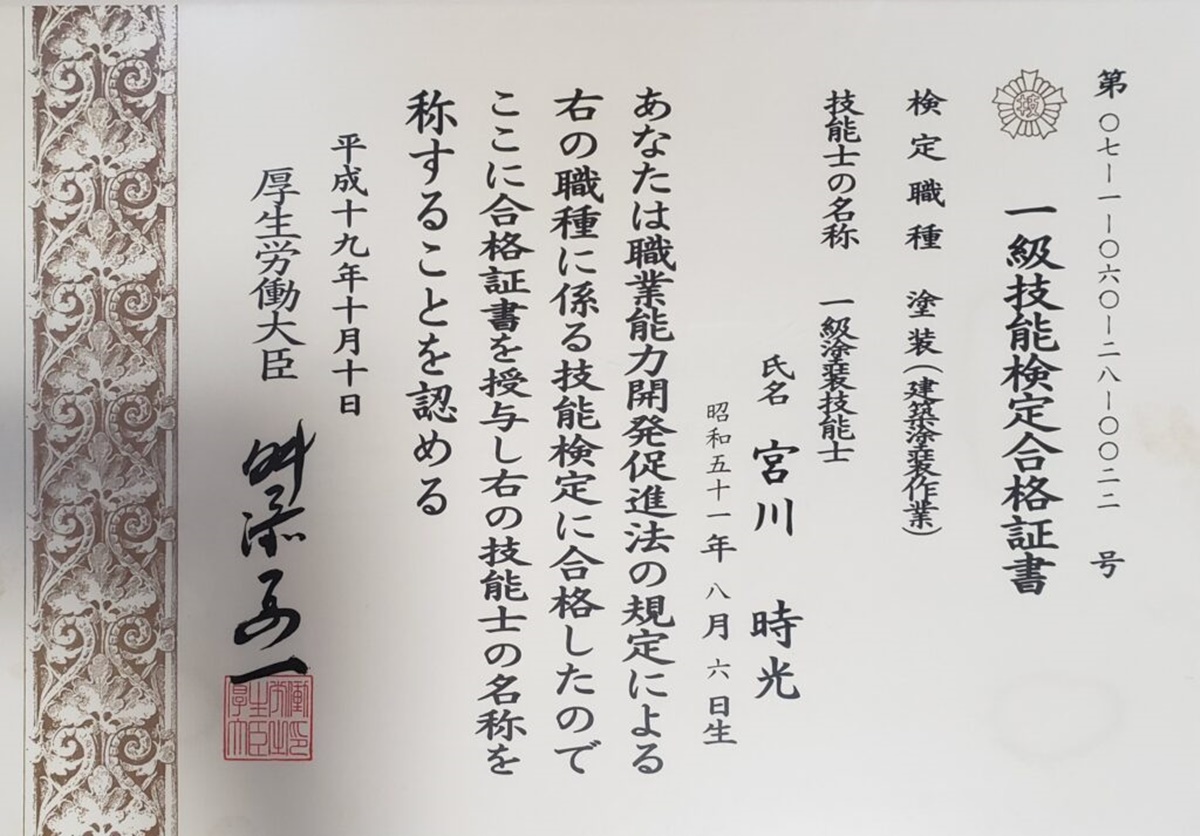 第〇七-一-〇六〇-二八-〇〇二二号
一級技能検定合格証書
検定職種 塗装(建築塗装作業)
技能士の名称 一級塗装技能士
氏名 宮川 時光
昭和五十一年八月六日生
あなたは職業能力開発促進法の規定による
右の職種に係る技能検定に合格したので
ここに合格証書を授与し右の技能士の名称を
称することを認める
平成十九年十月十日
厚生労働大臣 舛添要一
厚生労働大臣之印